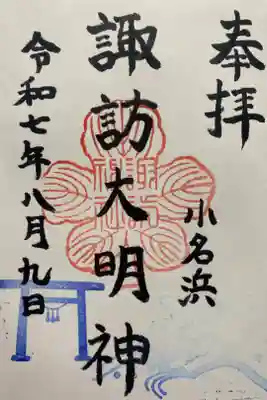 奉拝
小名浜
諏訪大明神
令和七年八月九日